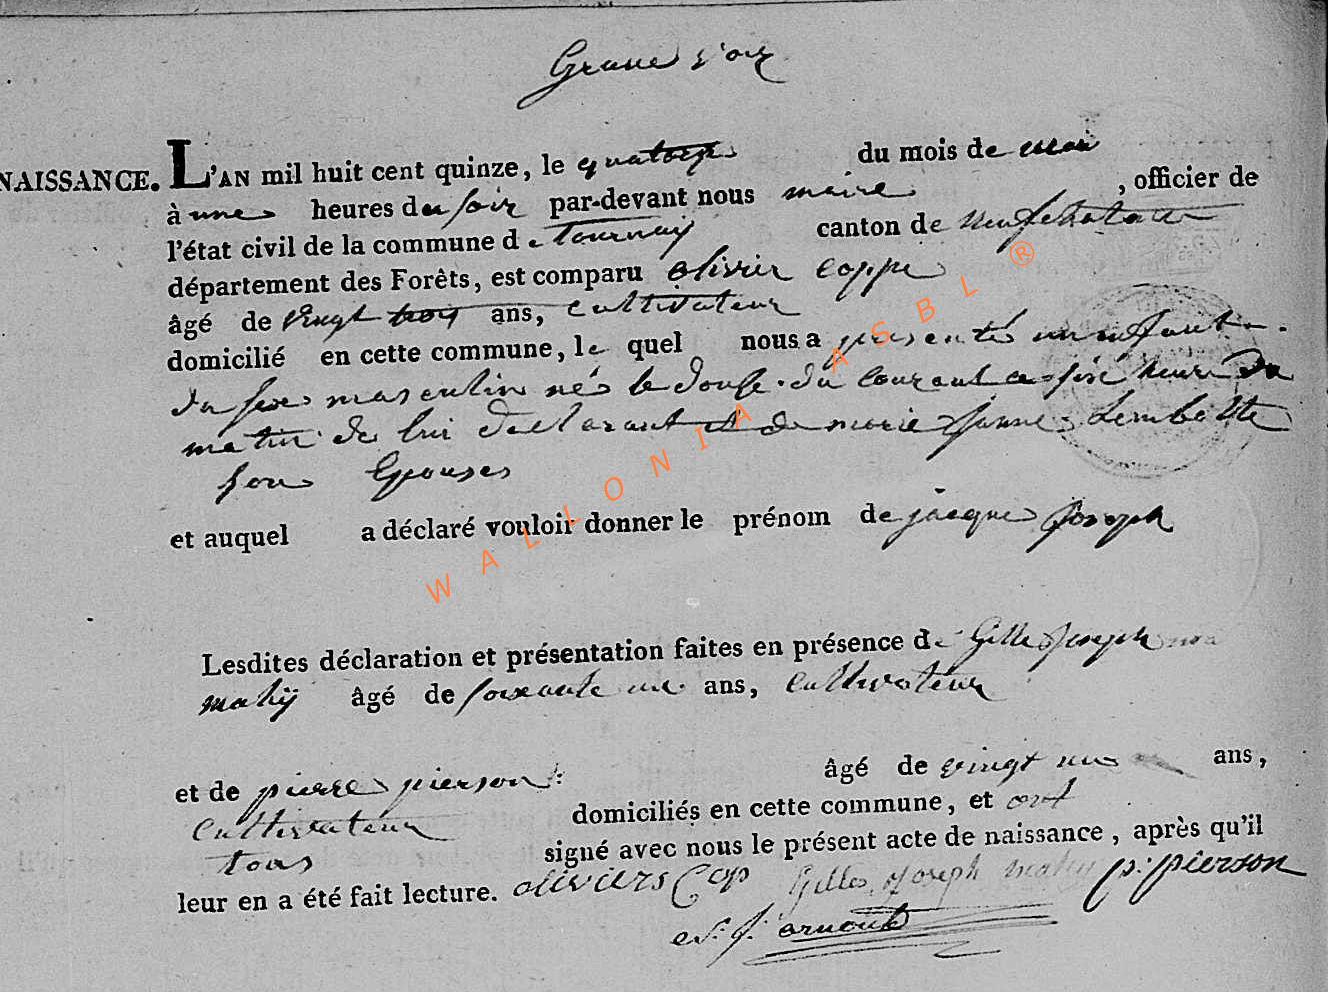 NAISSANCE. L'AN mil huit cent quinze, le quatorze du mois de mai
à une heures du soir par-devant nous maire , officier de
l'état civil de la commune de tournay canton de neufchateau
département des Forêts, est comparu olivier coppe
âgé de vingt trois ans, cultivateur
domicilié en cette commune, le quel nous a presentés un enfant
du sexe masculin nés le douse du courant a six heure du
matin de lui declarant et de marie jeanne Lambotte
son Epouses
et auquel a déclaré vouloir donner le prénom de jacque joseph
Lesdites déclaration et présentation faites en présence de Gille Joseph
mahÿ âgé de soixante un ans, cultivateur
et de pierre pierson âgé de vingt un ans,
cultivateur domiciliés en cette commune, et ont
tous signé avec nous le présent acte de naissance, après qu'il
leur en a été fait lecture. oliviers Cop Gilles Joseph mahy p: pierson
arnould
WALLONIA ASBL ®